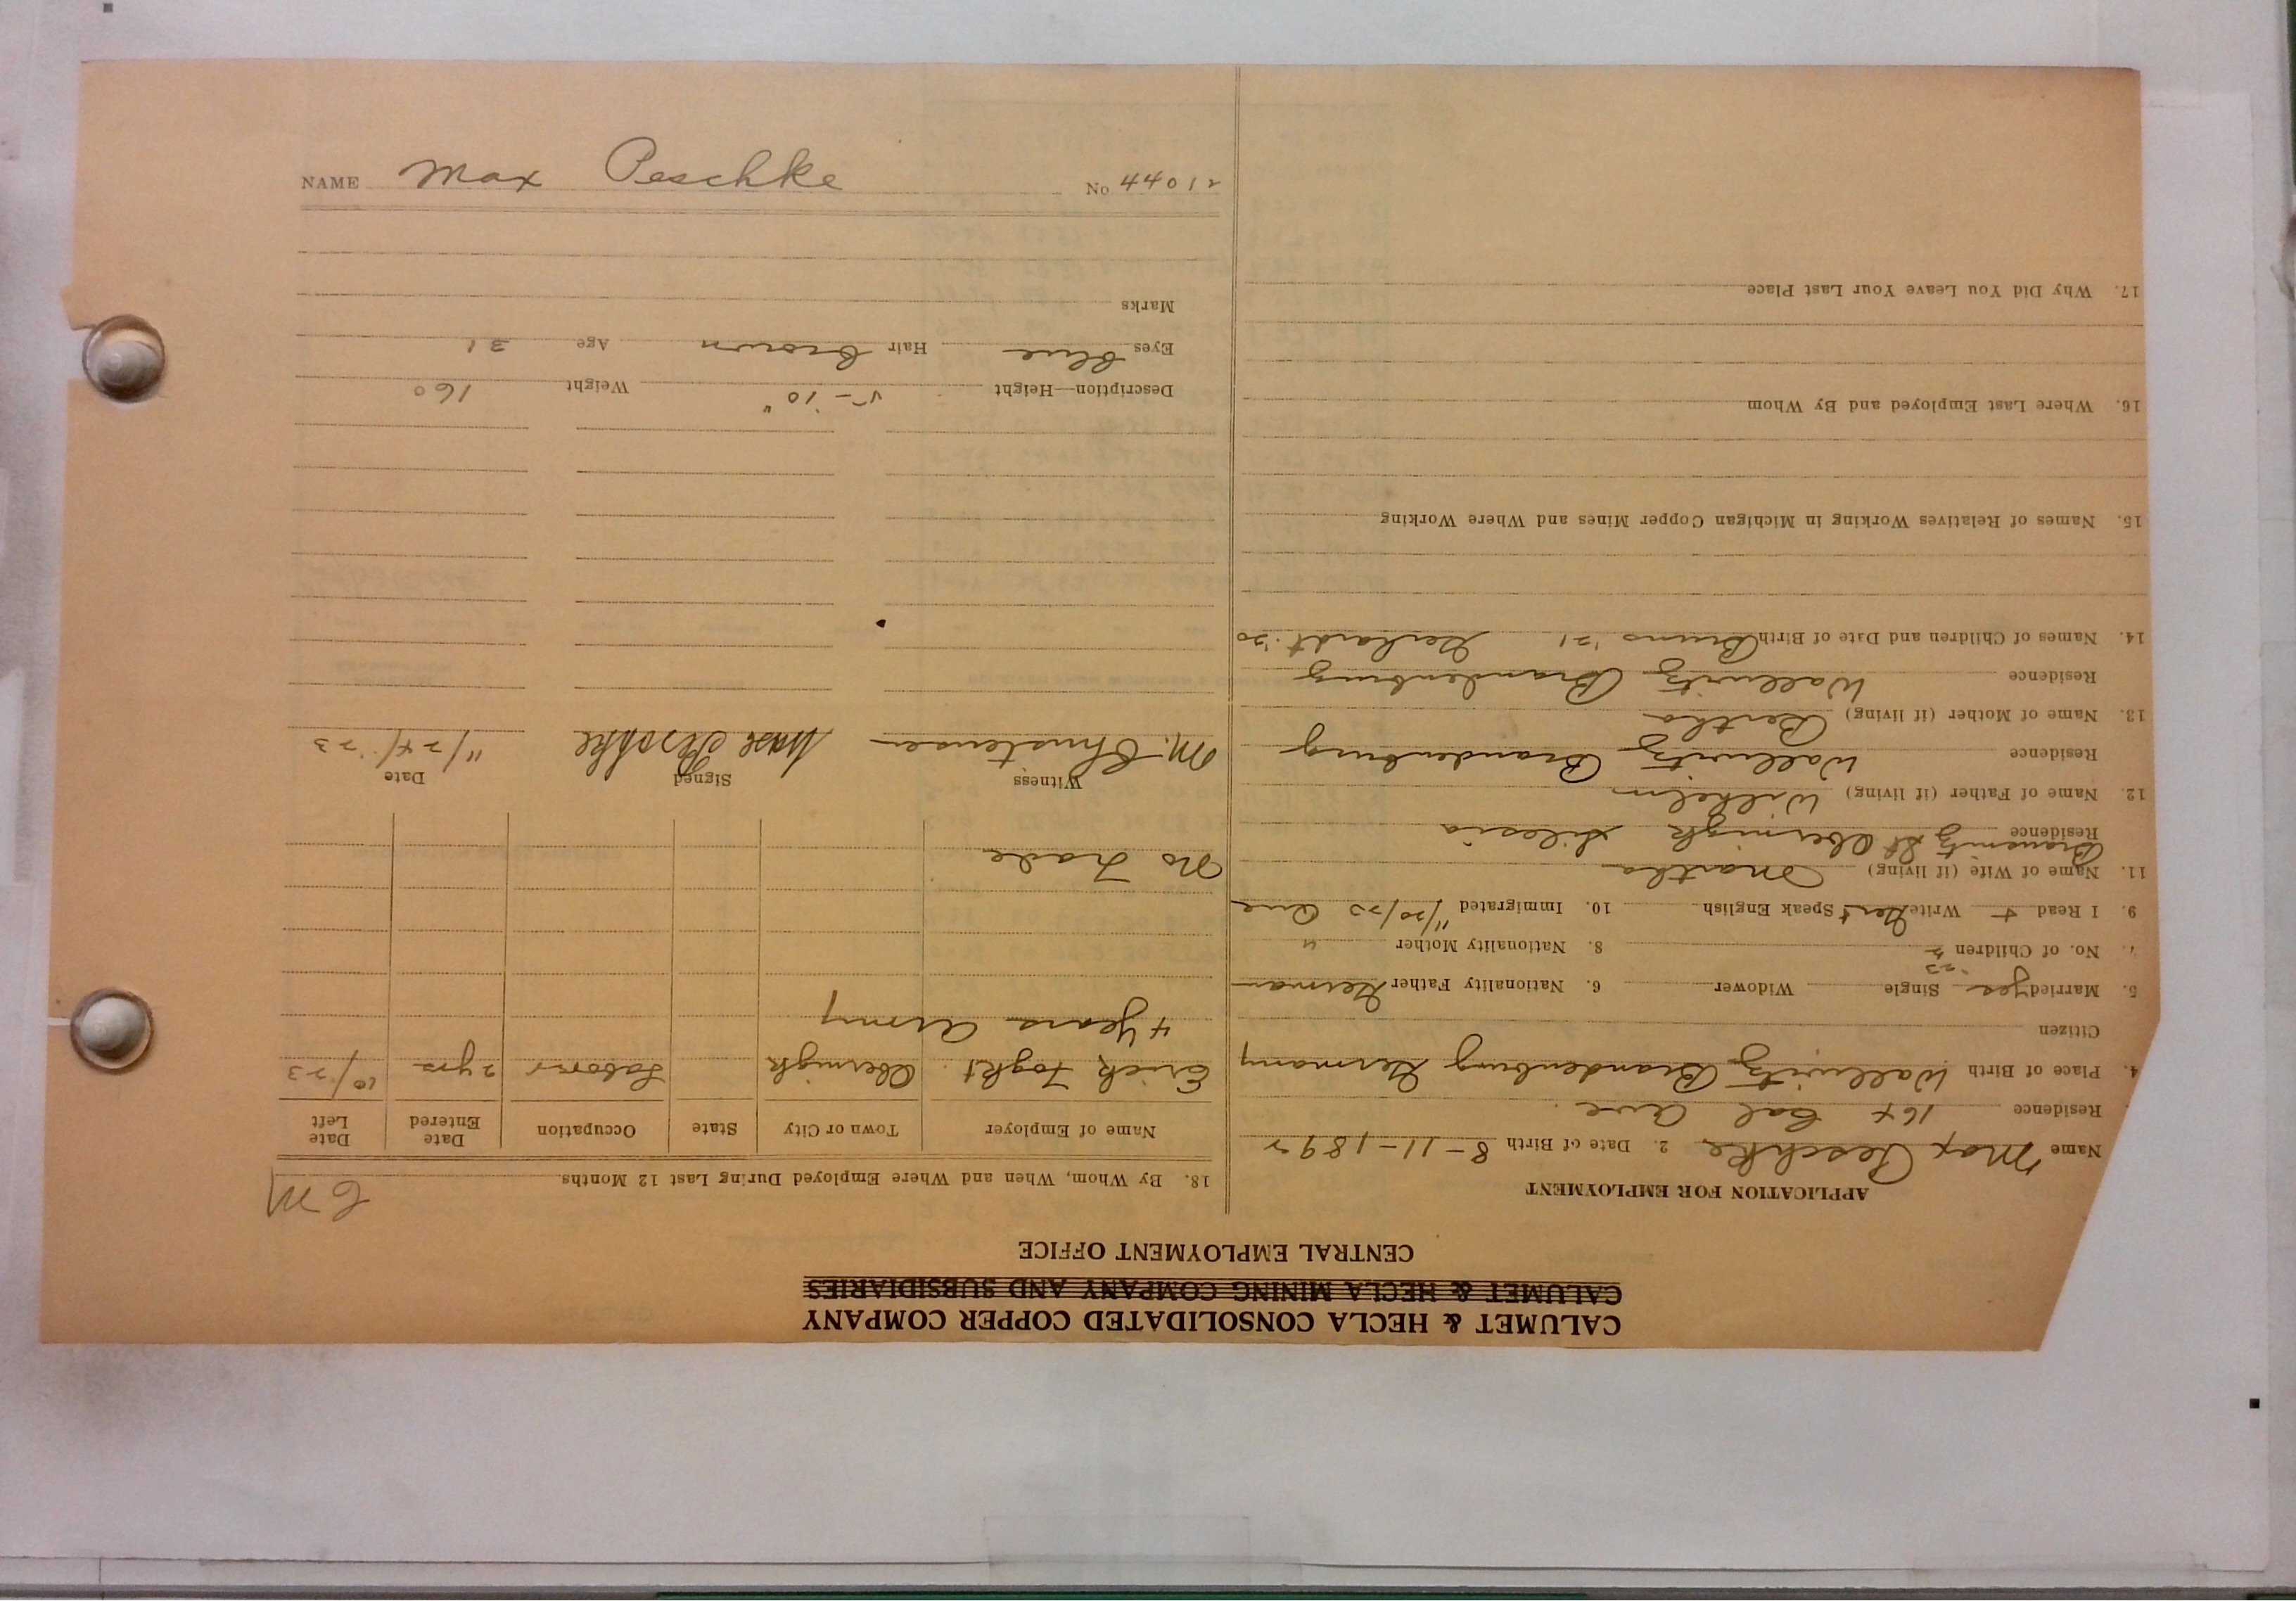 NAME Max Peschke No 44012
CALUMET & HECLA CONSOLIDATED COPPER COMPANY
CALUMET & HECLA MINING COMPANY AND SUBSIDIARIES
CENTRAL EMPLOYMENT OFFICE
APPLICATION FOR EMPLOYMENT
Name Max Peschke 2. Date of Birth 8-11-1892
Residence 164 Cal Ave.
4. Place of Birth Wallwitz Brandenburg Germany
Citizen
5. Married yes Single Widower 6. Nationality Father German
7. No. of Children 2 8. Nationality Mother "
9. I Read + Write Speak English 10. Immigrated 11/20/23
11. Name of Wife (if living) Martha
Residence Obernigk Silesia
12. Name of Father (if living) Wilhelm
Residence Wallwitz Brandenburg
13. Name of Mother (if living) Bertha
Residence Wallwitz Brandenburg
14. Names of Children and Date of Birth Bruno '21 Gerhardt '20
15. Names of Relatives Working in Michigan Copper Mines and Where Working
16. Where Last Employed and By Whom
17. Why Did You Leave Your Last Place
18. By Whom, When and Where Employed During Last 12 Months
Name of Employer Town or City State Occupation Date Entered Date Left
Erick Foght Obernigk Laborer 2 yrs 10/23
4 years Army
No Trade
Witness Signed Date
M. Christensen Max Peschke 11/24/23
Description—Height 5-10" Weight 160
Eyes blue Hair brown Age 31
Marks